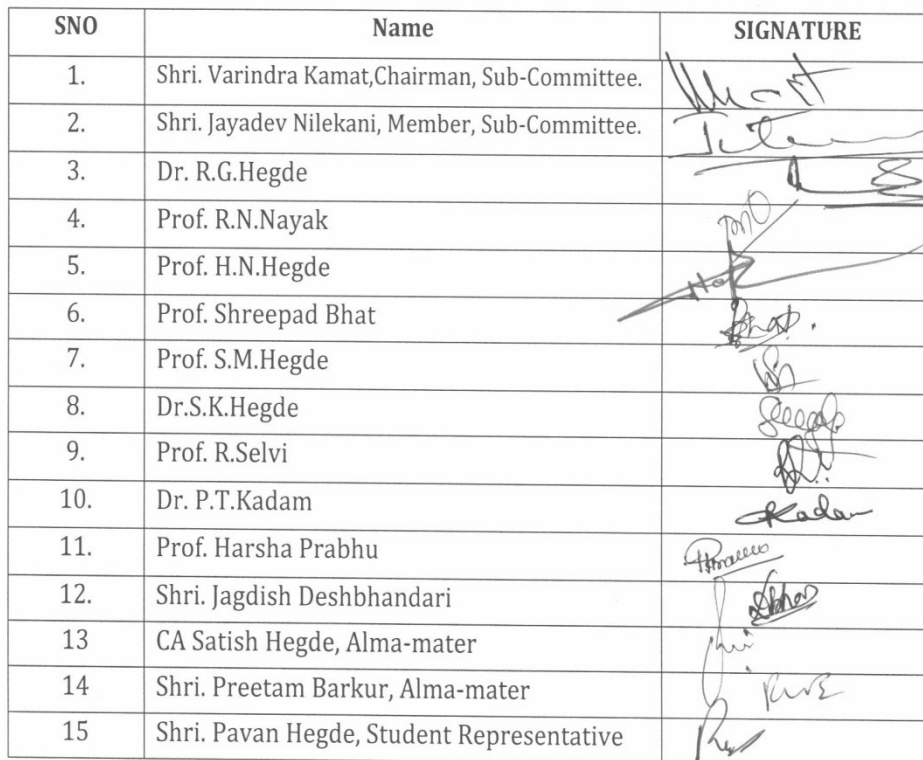 SNO Name SIGNATURE
1. Shri. Varindra Kamat,Chairman, Sub-Committee.
2. Shri. Jayadev Nilekani, Member, Sub-Committee.
3. Dr. R.G.Hegde
4. Prof. R.N.Nayak
5. Prof. H.N.Hegde
6. Prof. Shreepad Bhat Bhat.
7. Prof. S.M.Hegde
8. Dr.S.K.Hegde
9. Prof. R.Selvi
10. Dr. P.T.Kadam Kadam
11. Prof. Harsha Prabhu
12. Shri. Jagdish Deshbhandari
13 CA Satish Hegde, Alma-mater
14 Shri. Preetam Barkur, Alma-mater
15 Shri. Pavan Hegde, Student Representative